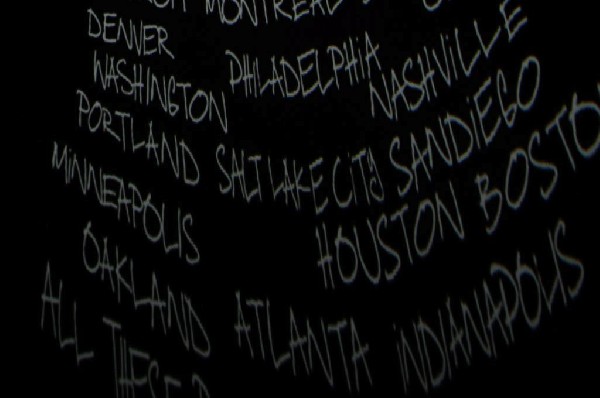 MONTREAL
DENVER PHILADELPHIA NASHVILLE
WASHINGTON
PORTLAND SALT LAKE CITY SAN DIEGO
MINNEAPOLIS HOUSTON BOSTO
OAKLAND ATLANTA INDIANAPOLIS
ALL THESE